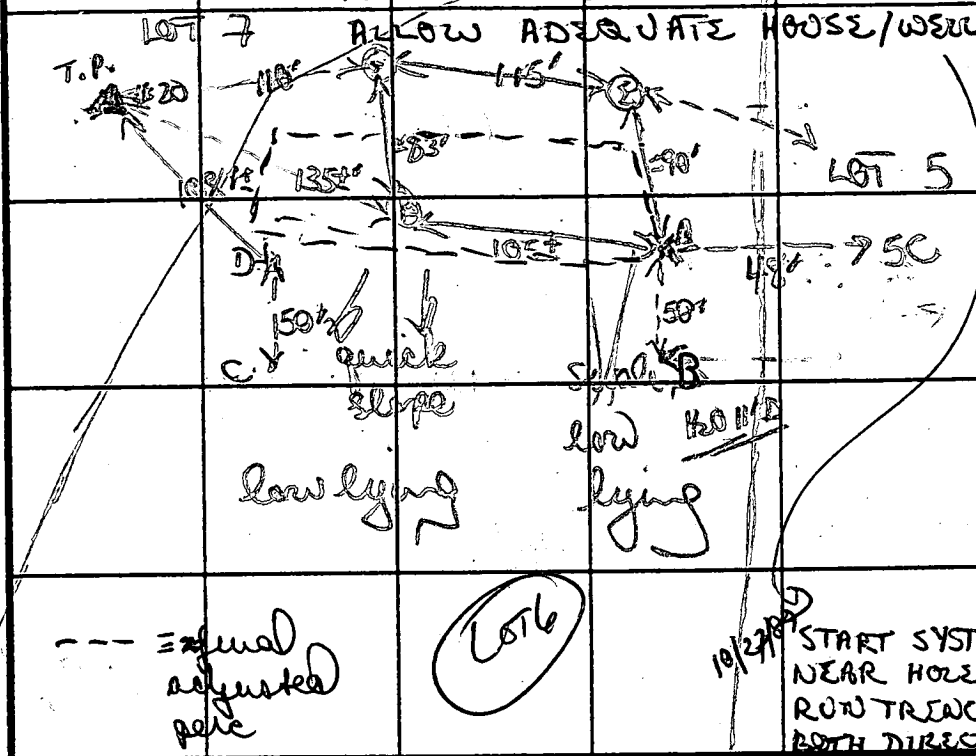 LOT 7 ALLOW ADEQUATE HOUSE/WELL
T.P.
115'
83'
90'
LOT 5
135±'
105±
A
5C
48'
D
50'
50'
C
quick
slope
B
H2O 11'D
low
lying
low lying
--- = final
adjusted
perc
LOT 6
10/27/87
START SYST
NEAR HOLE
RUN TRENC
BOTH DIREC